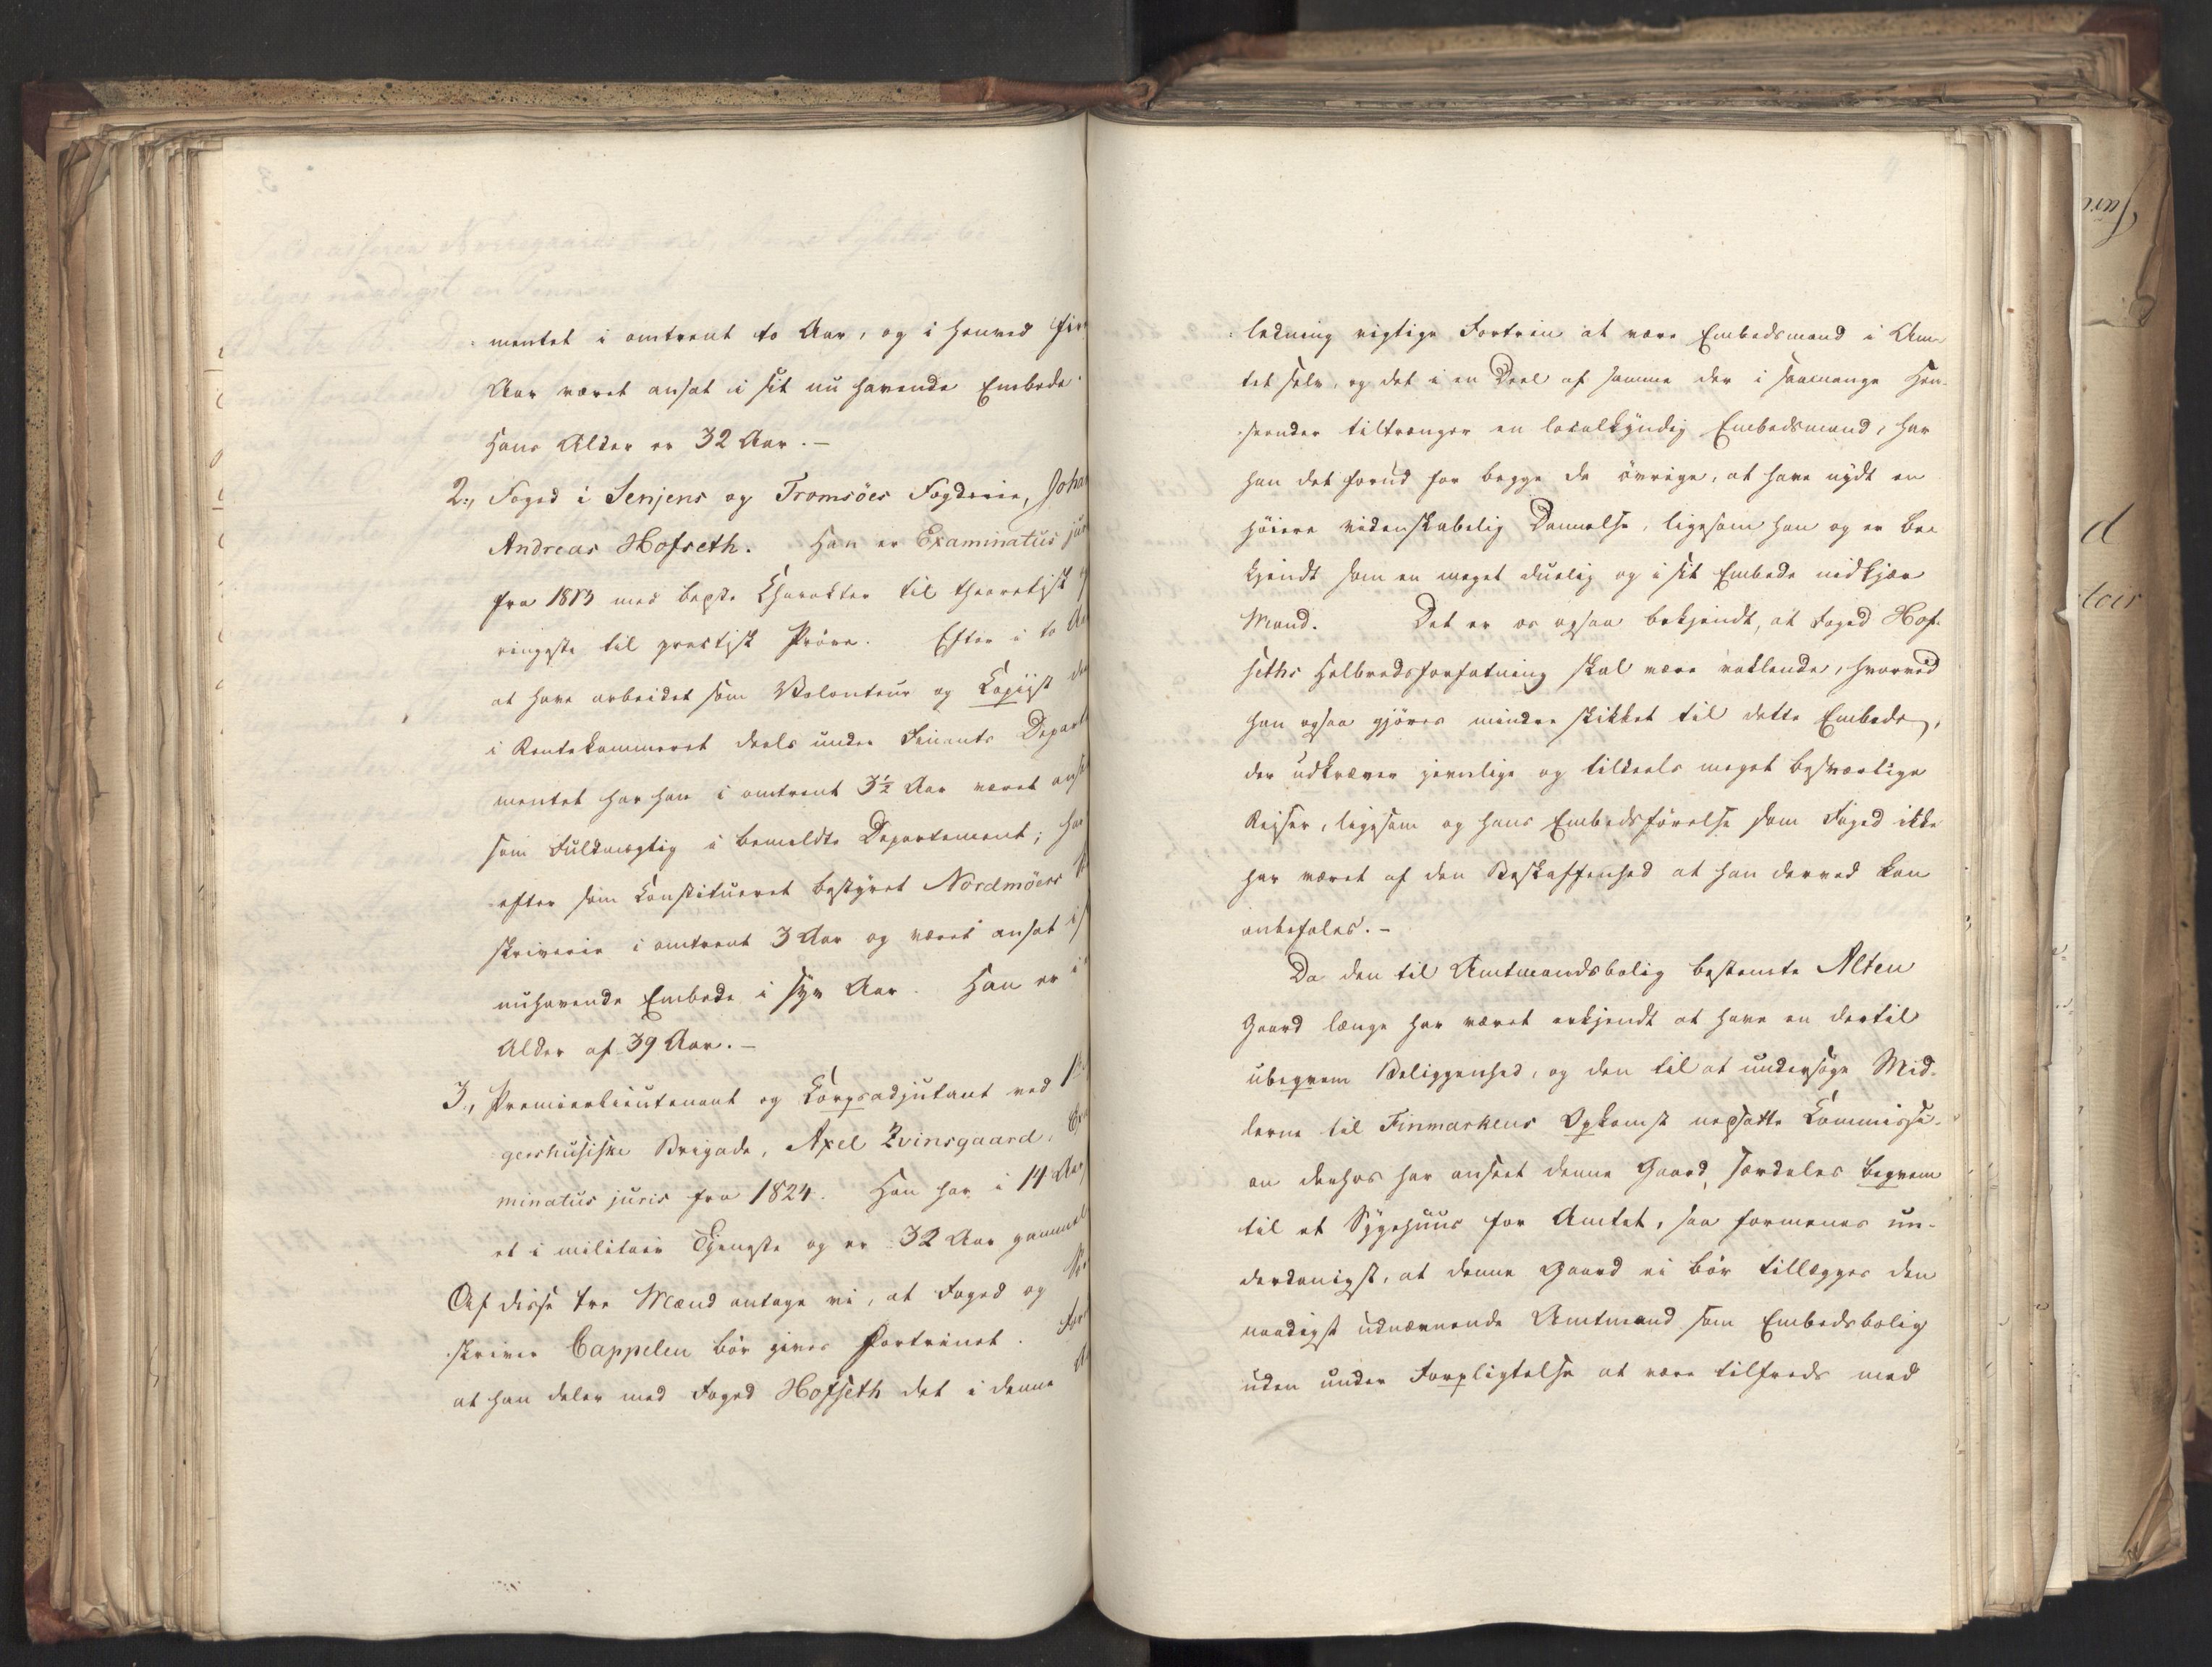 mentet i omtrent to Aar, og i henved fir
Aar været ansat i sit nu havende Embede.
Hans Alder er 32 Aar.-
2., Foged i Senjens og Tromsöes Fogderie, Joha
Andreas Hofseth. Han er Examinatus jur
fra 1813 med bedste Charakter til theoretisk
ringeste til practisk Pröve. Efter i to Aa
at have arbeidet som Volonteur og Copiist de
i Rentekammeret deels under Finants Depart
mentet har han i omtrent 3½ Aar været ans
som Fuldmægtig i bemeldte Departement; har
efter som Constitueret bestyret Nordmöers
skriverie i omtrent 3 Aar og været ansat i s
nuhavende Embede i syv Aar. Han er i
Alder af 39 Aar.-
3., Premierlieutenant og Corpsadjutant ved
gershusiske Brigade, Axel Qvinsgaard, Ex
minatus juris fra 1824. Han har i 14 Aar
et i militair Tjeneste og er 32 Aar gammel
Af disse tre Mænd antage vi, at Foged og
skriver Cappelen bör gives Fortrinet. For
at han deler med Foged Hofseth det i denne
ledning vigtige Fortrin at være Embedsmand i Am-
tet selv, og det i en Deel af samme der i saamange Hen-
seender tiltrænger en localkyndig Embedsmand, har
han det forud for begge de övrige, at have nydt en
höiere videnskabelig Dannelse, ligesom han og er be-
kjendt som en meget duelig og i sit Embede nidkjær
Mand. Det er os ogsaa bekjendt, at Foged Hof-
seths Helbredsforfatning skal være vaklende, hvorved
han ogsaa gjöres mindre skikket til dette Embede,
der udkræver jevnlige og tildeels meget besværlige
Reiser, ligesom og hans Embedsförelse som Foged ikke
har været af den Beskaffenhed at han derved kan
anbefales.-
Da den til Amtmandsbolig bestemte Alten
Gaard længe har været erkjendt at have en dertil
ubeqvem Beliggenhed, og den til at undersöge Mid-
lerne til Finmarkens Opkomst nedsatte Commissi-
on derhos har anseet denne Gaard særdeles beqvem
til et Sygehuus for Amtet, saa formenes un-
derdanigst, at denne Gaard ei bör tillægges den
naadigst udnævnende Amtmand som Embedsbolig
uden under Forpligtelse at være tilfreds med